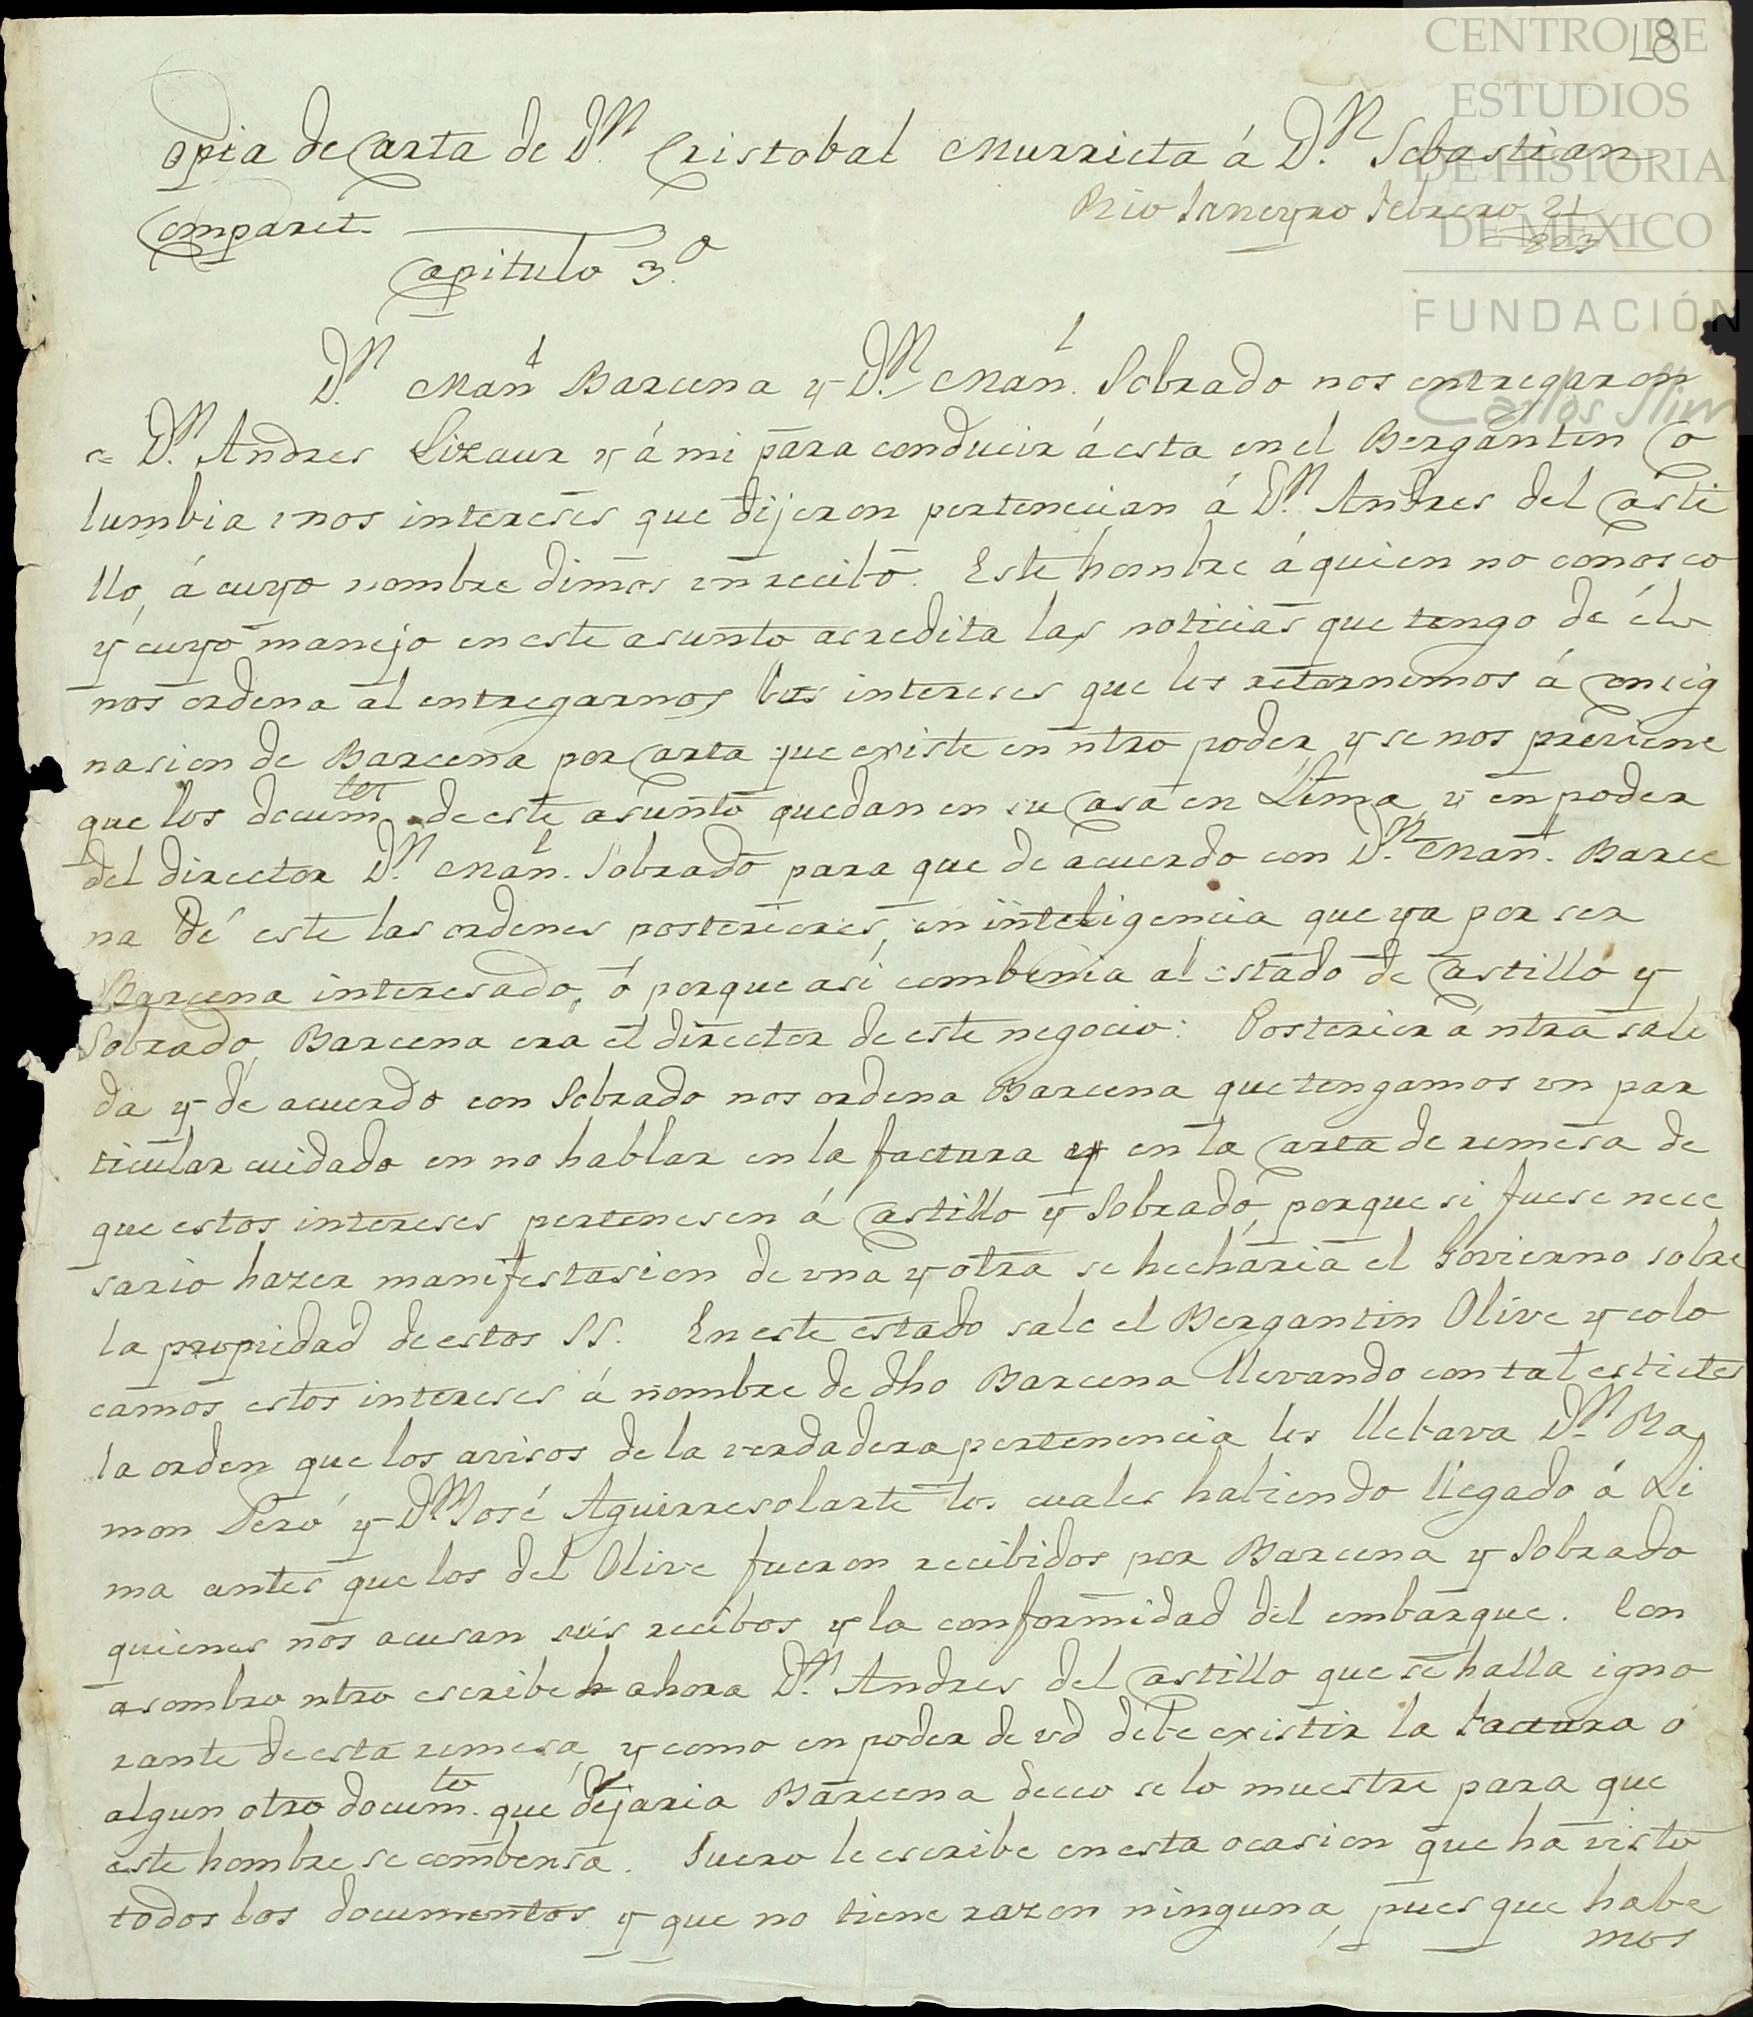 CENTRO DE
ESTUDIOS
DE HISTORIA
DE MÉXICO
FUNDACIÓN
Carlos Slim
L8
Copia de Carta de Dn. Cristobal Murrieta á Dn. Sebastian
Comparet
Rio Janeyro Febrero 21
823
Capitulo 3.o
Dn. Manl. Barcena y Dn. Manl. Sobrado nos entregaron
a Dn. Andres Lizaur y á mi para conducir á esta en el Bergantin Co
lumbia unos intereses que dijeron pertenecian á Dn. Andres del Casti
llo, á cuyo nombre dimos un recibo. Este hombre á quien no conosco
y cuyo manejo en este asunto acredita las noticias que tengo de él
nos ordena al entregarnos los intereses que les retornemos á consig
nasion de Barcena por Carta que existe en ntro poder, y se nos previene
que los documtos de este asunto quedan en su Casa en Lima, y en poder
del director Dn. Manl. Sobrado para que de acuerdo con Dn. Manl. Barce
na dé este las ordenes posteriores, en inteligencia que ya por ser
Barcena interesado, ó porque asi combenia al estado de Castillo y
Sobrado, Barcena era el director de este negocio: Posterior á ntra sali
da y de acuerdo con Sobrado nos ordena Barcena que tengamos un par
ticular cuidado en no hablar en la factura y en la Carta de remesa de
que estos intereses pertenesen á Castillo y Sobrado, porque si fuese nece
sario hazer manifestasion de una y otra se hecharia el Govierno sobre
la propiedad de estos SS. En este estado sale el Bergantin Olive y colo
camos estos intereses á nombre de dho Barcena llevando con tal
la orden que los avisos de la verdadera pertenencia les llebava Dn. Ra
mon Peró y Dn. José Aguirresolarte los cuales habiendo llegado á Li
ma antes que los del Olive fueron recibidos por Barcena y Sobrado
quienes nos acusan sus recibos y la conformidad del embarque. Con
asombro ntro escribe ahora Dn. Andres del Castillo que se halla igno
rante de esta remesa, y como en poder de vd debe existir la factura ó
algun otro documto. que dejaria Barcena deceo se lo muestre para que
este hombre se combensa. Suero le escribe en esta ocasion que ha visto
todos los documentos y que no tiene razon ninguna, pues que habe
mos